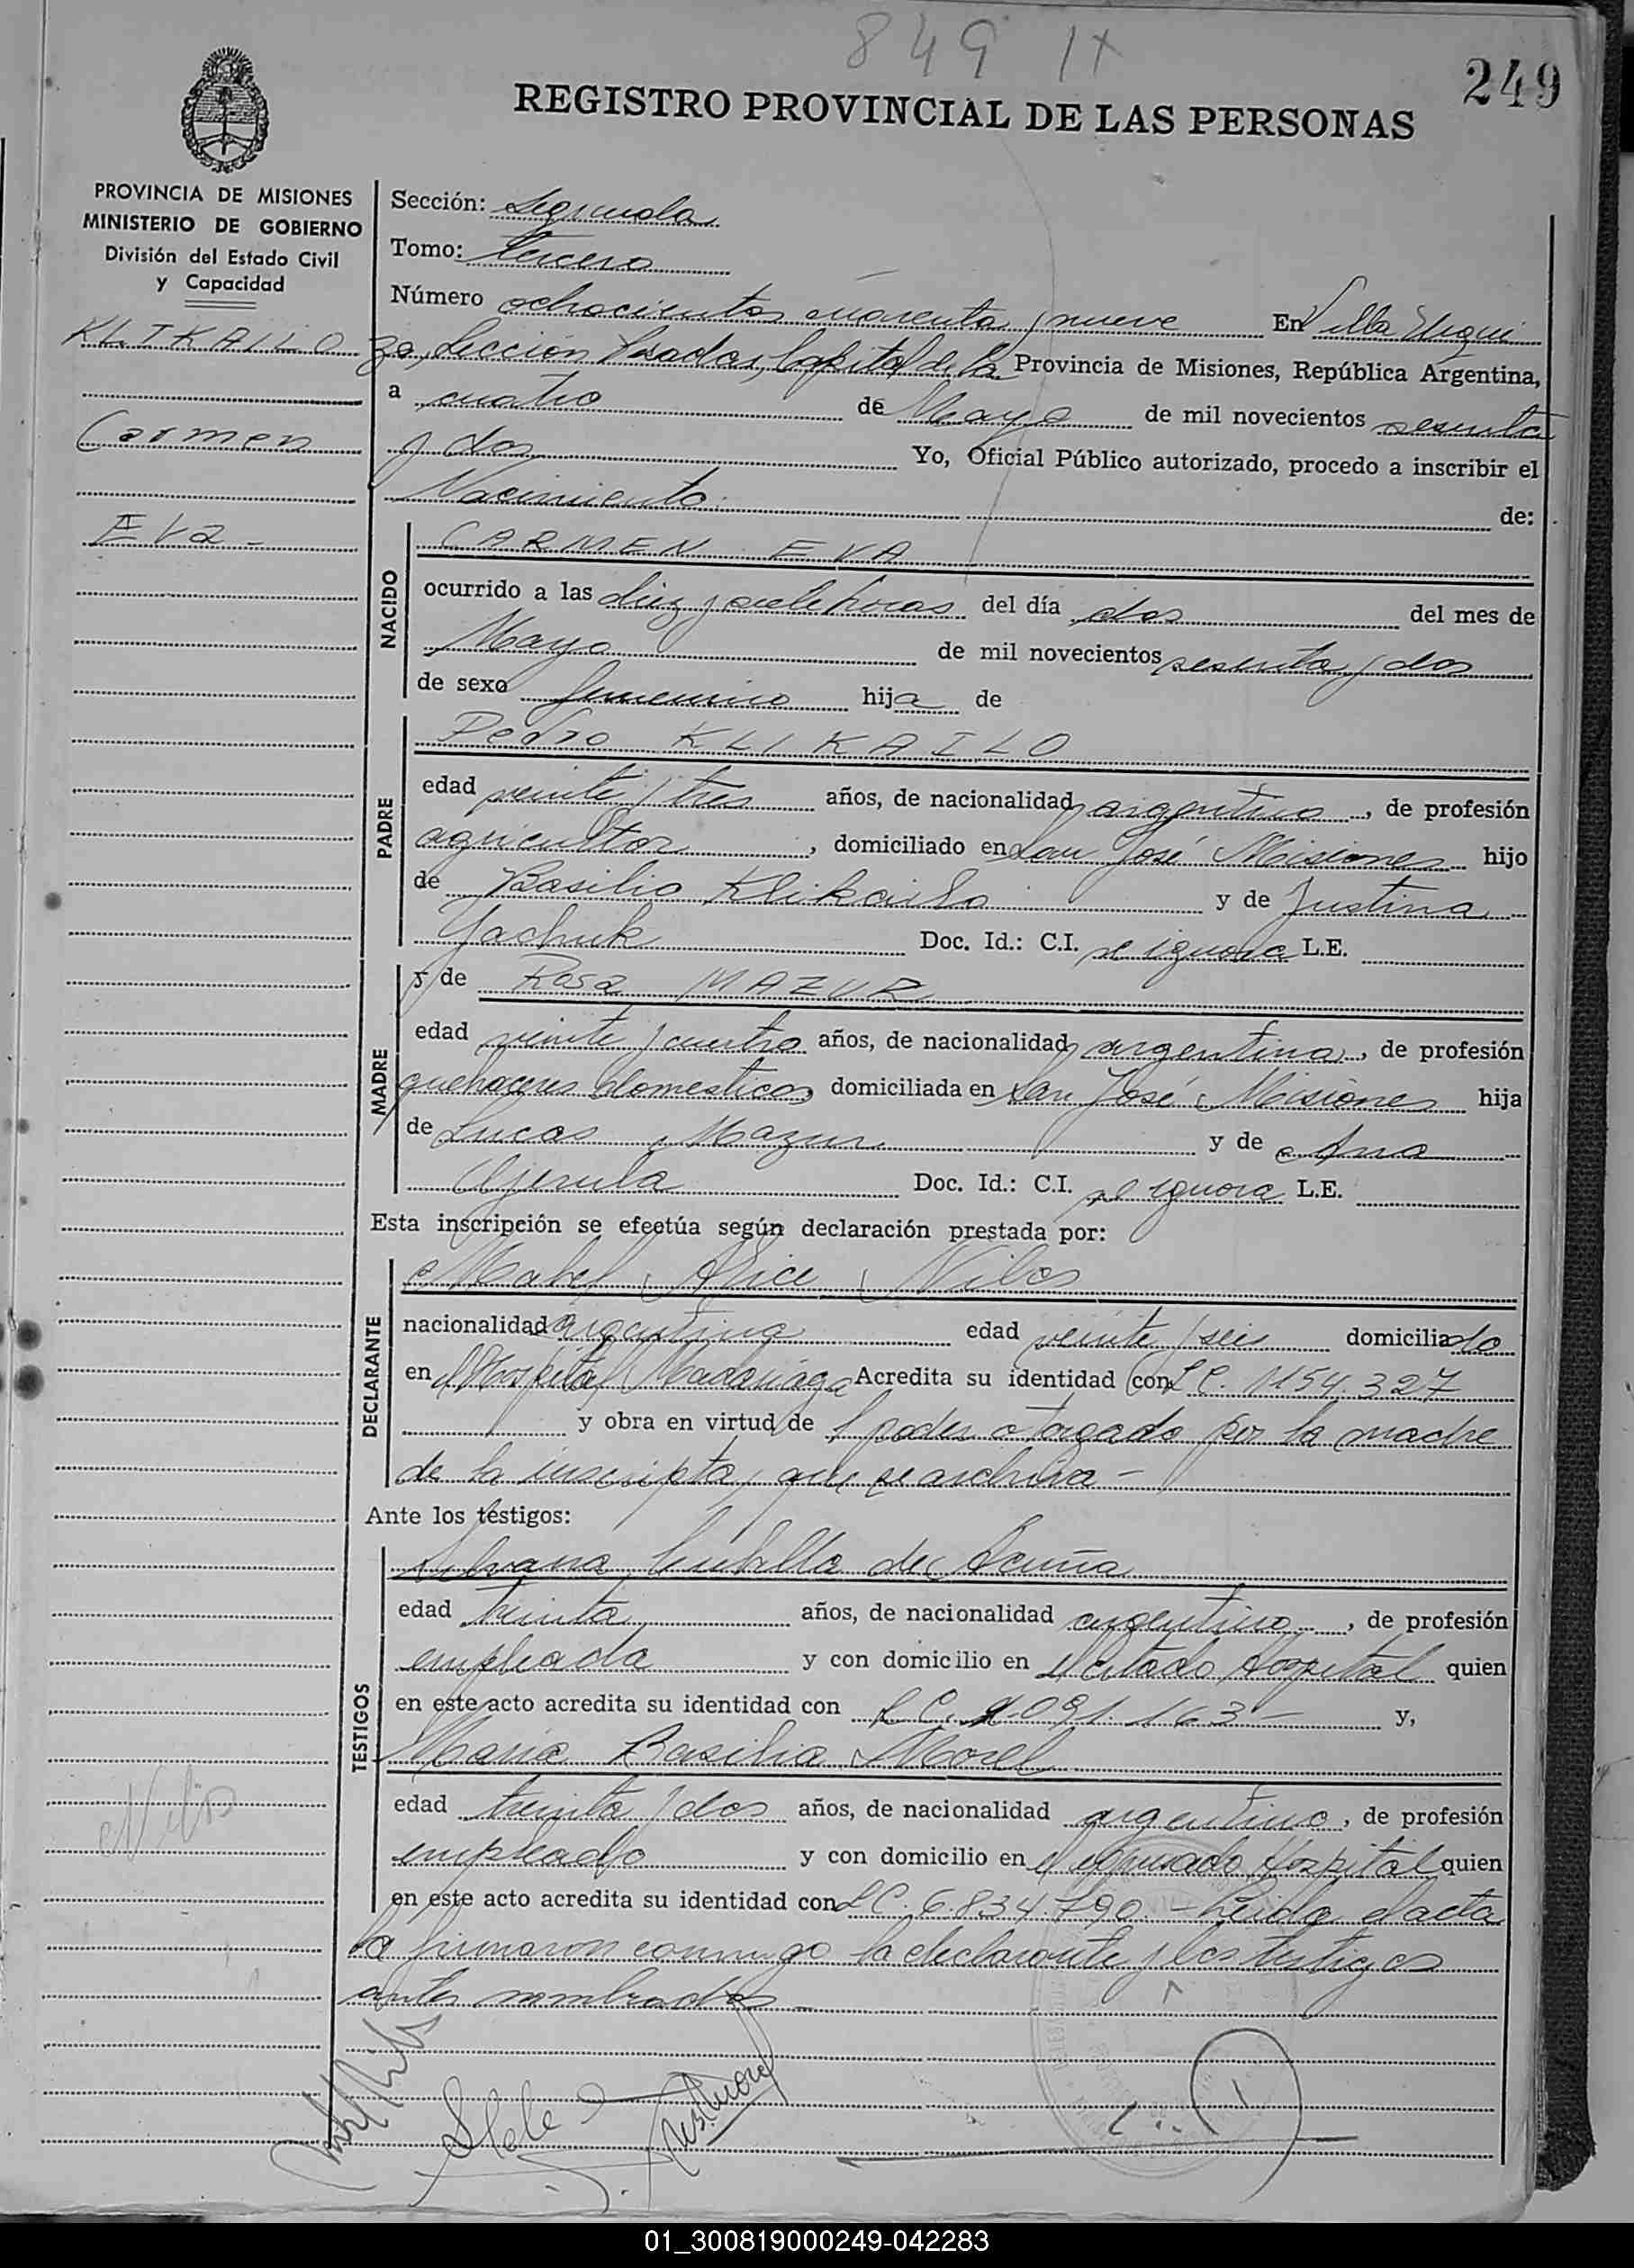 849 IX
249
REGISTRO PROVINCIAL DE LAS PERSONAS
PROVINCIA DE MISIONES
MINISTERIO DE GOBIERNO
División del Estado Civil
y Capacidad
KLIKAILO
Carmen
Eva -
Sección: Segunda
Tomo: tercero
Número ochocientos cuarenta y nueve En Villa Urqui
za, Sección Posadas, Capital de la Provincia de Misiones, República Argentina,
a cuatro de Mayo de mil novecientos sesenta
y dos Yo, Oficial Público autorizado, procedo a inscribir el
Nacimiento de:
NACIDO
CARMEN EVA
ocurrido a las diez y siete horas del día dos del mes de
Mayo de mil novecientos sesenta y dos
de sexo femenino hija de
PADRE
Pedro KLIKAILO
edad veinte y tres años, de nacionalidad argentino, de profesión
agricultor, domiciliado en San José Misiones hijo
de Basilio Klikailo y de Justina
Yachuk Doc. Id.: C.I. se ignora L.E.
MADRE
y de Rosa MAZUR
edad veinte y cuatro años, de nacionalidad argentina, de profesión
quehaceres domesticos, domiciliada en San José Misiones hija
de Lucas Mazur y de Ana
Doc. Id.: C.I. se ignora L.E.
Esta inscripción se efectúa según declaración prestada por:
DECLARANTE
Mabel Alice Nilos
nacionalidad argentina edad veinte y seis domiciliada
en el Hospital Madariaga Acredita su identidad con L C. 1154.327
y obra en virtud de l poder otorgado por la madre
de la inscripta, que se archiva -
Ante los testigos:
TESTIGOS
Silvana de Acuña
edad treinta años, de nacionalidad argentina, de profesión
empleada y con domicilio en el citado Hospital quien
en este acto acredita su identidad con L C. 2.091.163 - y,
María Basilia Morel
edad treinta y dos años, de nacionalidad argentino, de profesión
empleado y con domicilio en el expresado Hospital quien
en este acto acredita su identidad con L C. 6.834.790 - Leida el acta
la firmaron conmigo la declarante y los testigos
antes nombrados -
Nilos
01_300819000249-042283